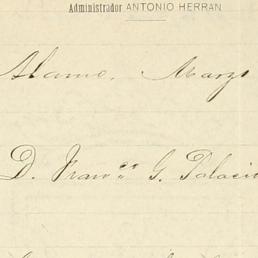 Administrador ANTONIO HERRAN
Alamo, Marzo
D. Franco G. Palacio